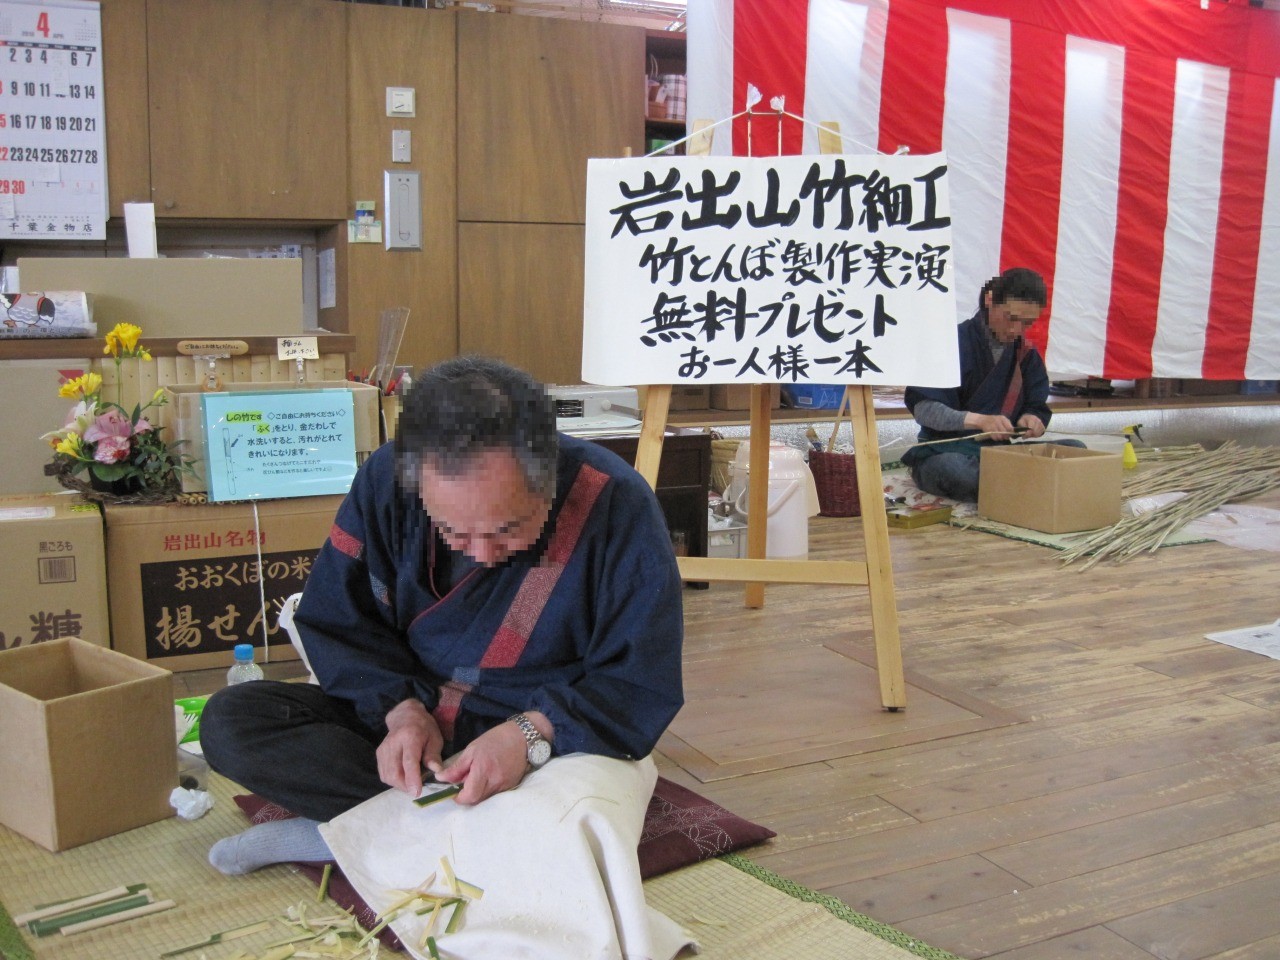 岩出山竹細工
竹とんぼ製作実演
無料プレゼント
お一人様一本
4
2 3 4 6 7
9 10 11 13 14
15 16 17 18 19 20 21
22 23 24 25 26 27 28
29 30
千葉金物店
しの竹です ◇ご自由にお持ちください◇
「ふく」をとり、金だわしで
水洗いすると、汚れがとれて
きれいになります。
岩出山名物
おおくぼの米
揚せん
黒ごろも
糖